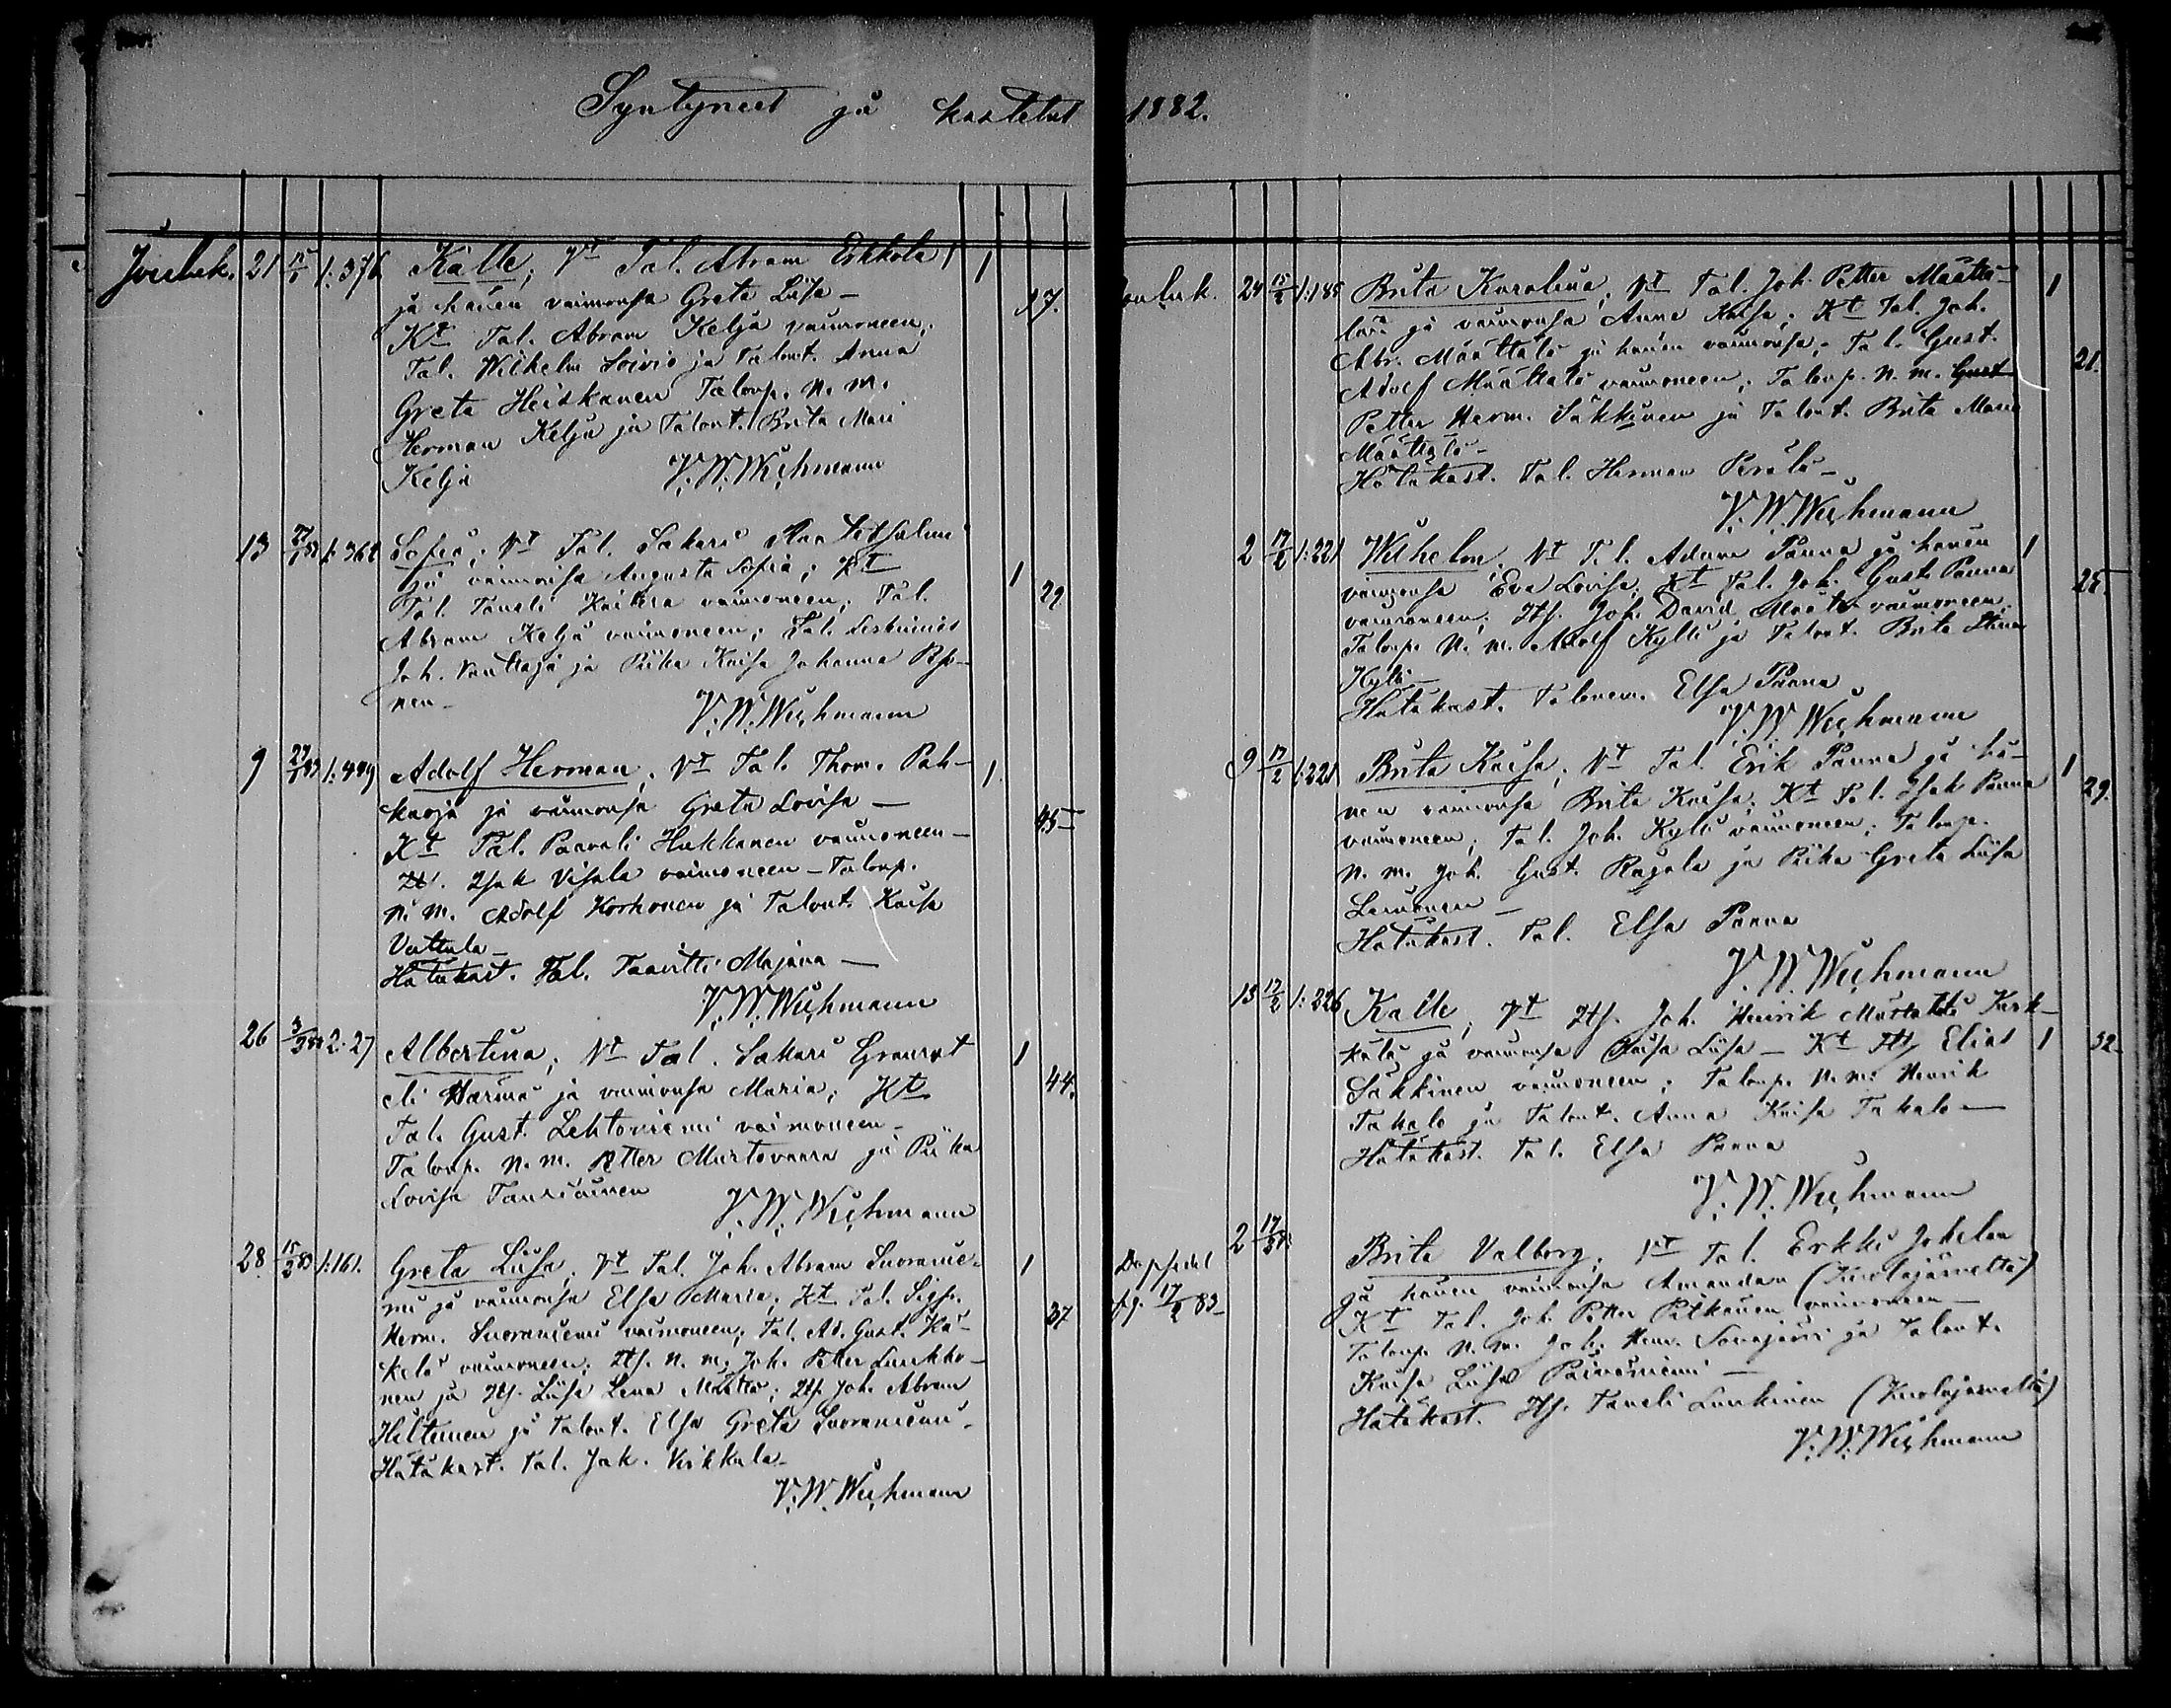 Syntyneet ja kastetut 1882.
Jouluk. 21 1:376 Kalle; Vt Tal. Abram Erkkola 1
ja hänen vaimonsa Greta Liisa — 17.
Kt Tal. Abram Kelja vaimoneen,
Tal. Wilhelm Soivio ja Talont. Anna
Greta Heiskanen Talonp. n. m.
Herman Kelja ja Talont. Brita Mari
Kelja V. W. Wichmann
13 27/1 83 1:368 Sofia; Vt Tal. Sakari
ja vaimonsa Augusta Sofia; Kt 1
Tal. Taneli Kaitera vaimoneen; Tal. 29
Abram Kelja vaimoneen; Tal. Leskimies
Joh. ja Piika Kaisa Johanna
nen — V. W. Wichmann
9 27/1 83 1:499 Adolf Herman; Vt Tal. Thom. Pah-
karja ja vaimonsa Greta Lovisa — 1
Kt Tal. Paavali Hukkanen vaimoneen — 45
Isak Visala vaimoneen — Talonp.
n. m. Adolf Korhonen ja Talont. Kaisa
Vattula —
Hätäkast. Tal. Taavetti Majava —
V. W. Wichmann
26 3/2 83 2:27 Albertina; Vt Tal. Sakari
eli Härmä ja vaimonsa Maria; Kt 1 44.
Tal. Gust. Lehtoniemi vaimoneen —
Talonp. n. m. Petter Murtovaara ja Piika
Lovisa Tauriainen V. W. Wichmann
28 15/2 83 1:161. Greta Liisa; Vt Tal. Joh. Abram Suoranie- 1
mi ja vaimonsa Elsa Maria; Kt Tal. Sigfr.
Herm. Suoraniemi vaimoneen; Tal. Ad. Gust. Kä- 37
kelä vaimoneen; Its. n. m. Joh. Petter Lunkko-
nen ja Its. Liisa Lena Määttä; Its. Joh. Abram
Hiltunen ja Talont. Elsa Greta Suoraniemi.
Hätäkast. Tal. Jak. Virkkula —
V. W. Wichmann
Jouluk. 24 15/2 1:185 Brita Karolina; Vt Tal. Joh. Petter Määttä- 1
lä ja vaimonsa Anna Kaisa; Kt Tal. Joh.
Abr. Määttälä ja hänen vaimonsa; Tal. Gust.
Adolf Määttälä vaimoneen; Talonp. n. m. Gust 21.
Petter Herm. Säkkinen ja Talont. Brita Maria
Määttälä —
Hätäkast. Tal. Herman Perälä —
V. W. Wichmann
2 17/2 1:221 Wilhelm. Vt Tal. Adam Panna ja hänen 1
vaimonsa Eva Lovisa; Kt Tal. Joh. Gust. Panna 25.
vaimoneen; Its. Joh. David Määttä vaimoneen;
Talonp. n. m. Adolf Kylli ja Talont. Brita Stina
Kylli —
Hätäkast. Talonem. Elsa Panna
V. W. Wichmann
9 17/2 1:221 Brita Kaisa; Vt Tal. Erik Panna ja hä- 1
nen vaimonsa Brita Kaisa. Kt Tal. Isak Panna 29.
vaimoneen; Tal. Joh. Kylli vaimoneen; Talonp.
n. m. Joh. Gust. Rajala ja Piika Greta Liisa
Leinonen —
Hätäkast. Tal. Elsa Panna
V. W. Wichmann
13 17/2 1:226 Kalle; Vt Its. Joh. Henrik
ja vaimonsa Kaisa Liisa — Kt Its. Elias 1 32
Säkkinen vaimoneen; Talonp. n. m. Henrik
Takalo ja Talont. Anna Kaisa Takalo —
Hätäkast. Tal. Elsa Panna
V. W. Wichmann
2 17/2 83 Brita Valborg; Vt Tal. Erkki Jokelan
ja hänen vaimonsa Amandan (Kuolajärveltä)
17/2 83 Kt Tal. Joh. Petter Pitkänen vaimoneen —
Talonp. n. m. Joh. Henr. ja Talont.
Kaisa Liisa Päiväniemi —
Hätäkast. Its. Taneli Lunkinen (Kuolajärveltä)
V. W. Wichmann